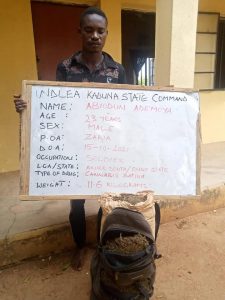 NDLEA KADUNA STATE COMMAND
NAME: ABIODUN ADEMOYA
AGE: 23 YEARS
SEX: MALE
P.O.A: ZARIA
D.O.A: 15-10-2021
OCCUPATION: SOLDIER
LGA/STATE: AKURE SOUTH/ONDO STATE
TYPE OF DRUG: CANNABIS SATIVA
WEIGHT: 11.6 KILOGRAMS